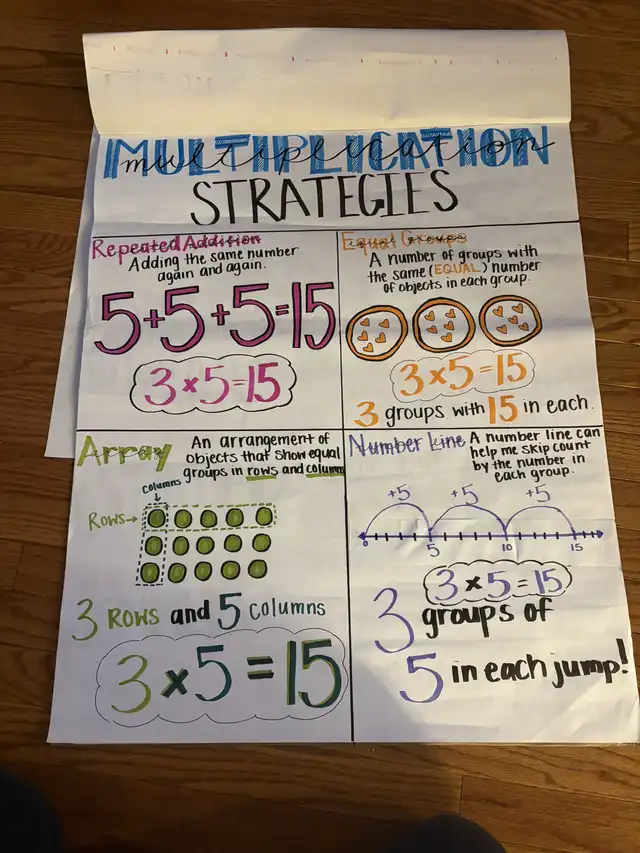 MULTIPLICATION
multiplication
STRATEGIES
Repeated Addition
Adding the same number
again and again.
5+5+5=15
3×5=15
Equal Groups
A number of groups with
the same (EQUAL) number
of objects in each group.
3×5=15
3 groups with 15 in each.
Array
An arrangement of
objects that show equal
groups in rows and columns
columns
Rows→
3 Rows and 5 columns
3×5=15
Number Line
A number line can
help me skip count
by the number in
each group.
+5 +5 +5
0 5 10 15
3×5=15
3 groups of
5 in each jump!